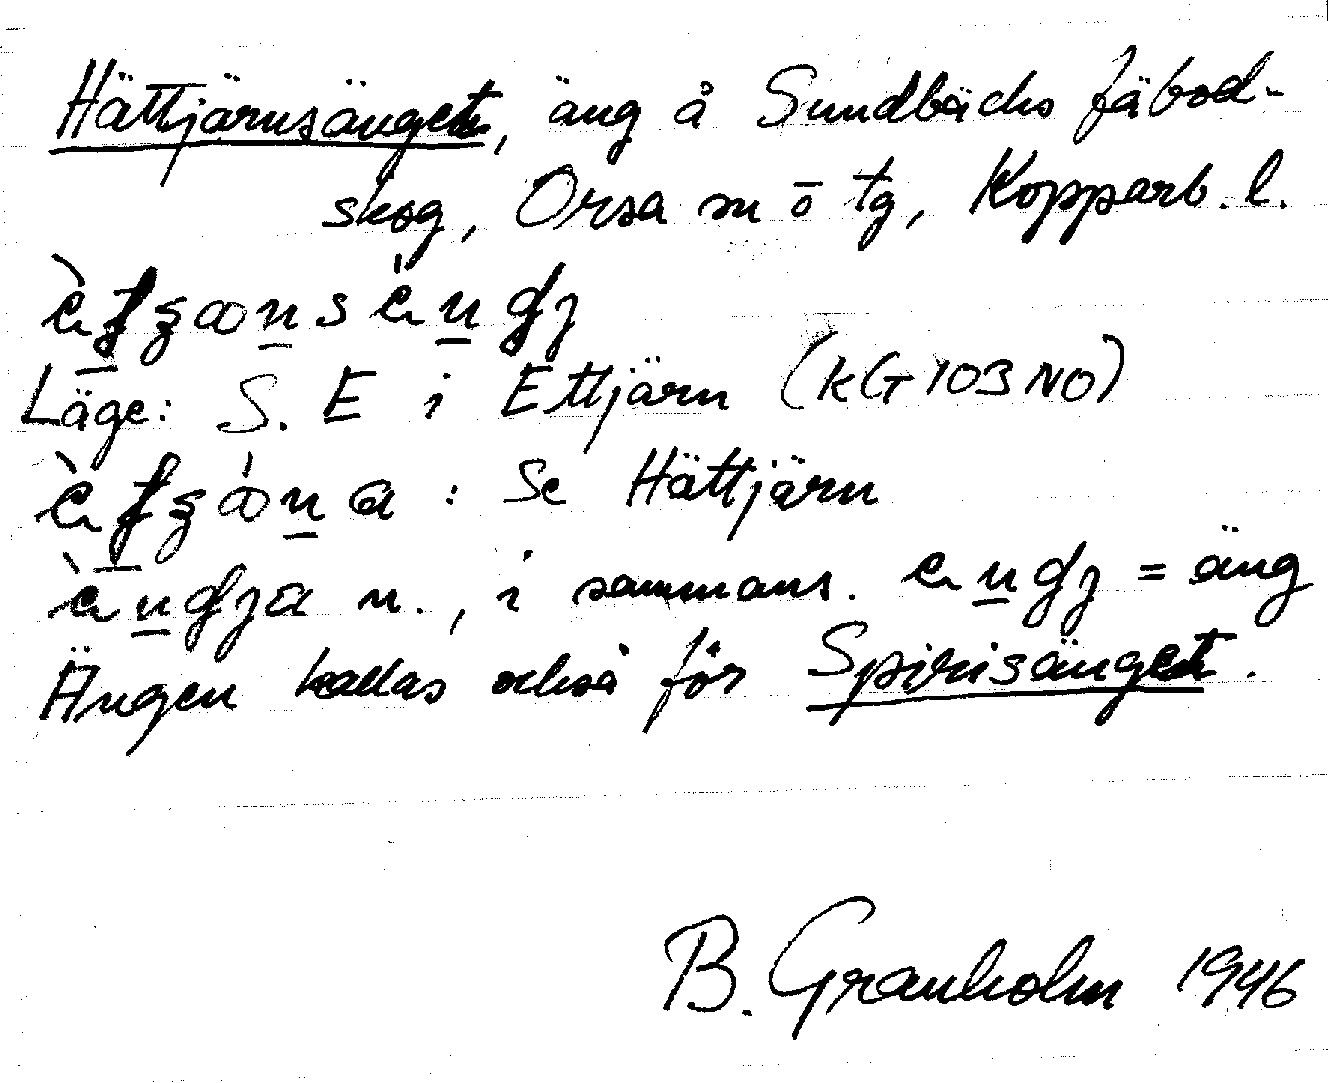 Hättjärnsänget, äng å Sundbäcks fäbod-
skog, Orsa sn o tg, Kopparb. l.
Läge: S. E i Ettjärn (KG 103 NO)
: Se Hättjärn
n., i sammans. = äng
Ängen kallas också för Spirisänget.
B. Granholm 1946